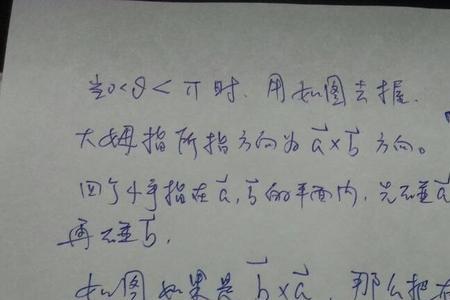 当0<θ<π时. 用如图去握.
大姆指所指方向为a⃗×b⃗方向。
四个手指在a⃗,b⃗的平面内,先碰a⃗
再碰b⃗,
如图如果是b⃗×a⃗,那么把